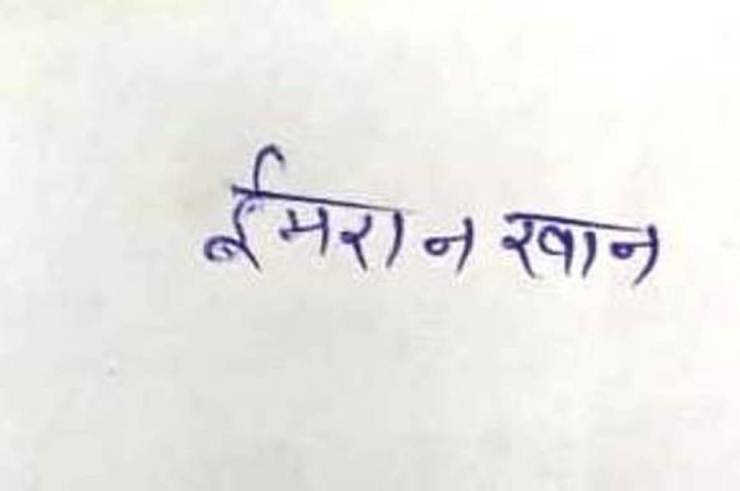 ईमरान खान